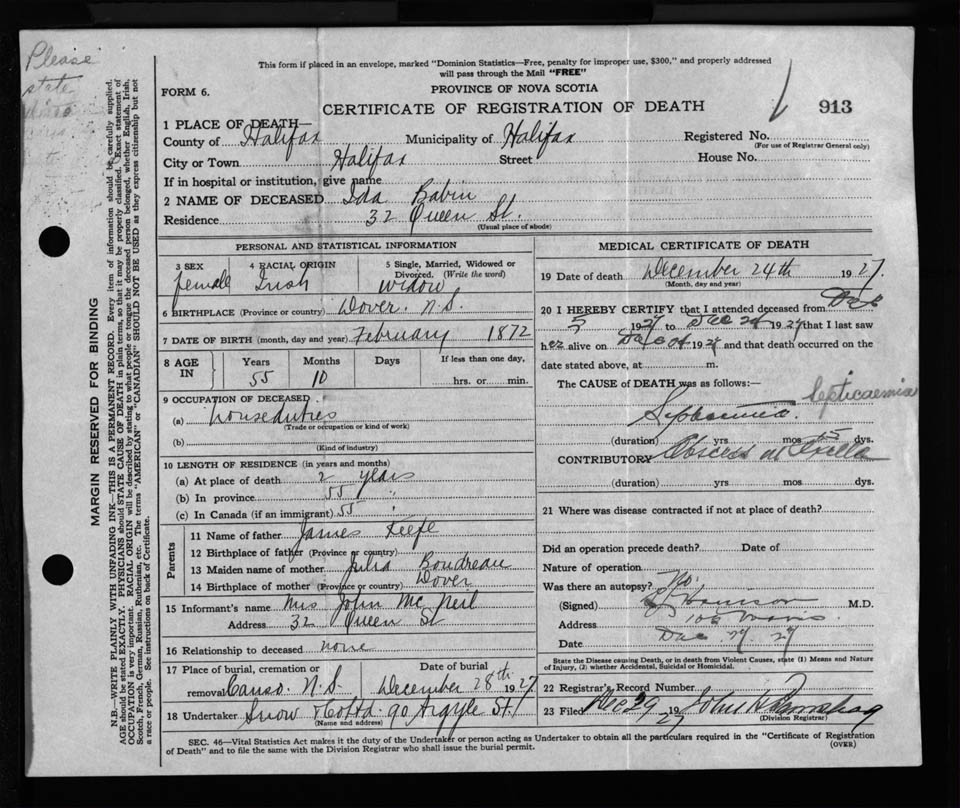 Please
state
This form if placed in an envelope, marked "Dominion Statistics—Free, penalty for improper use, $300," and properly addressed
will pass through the Mail "FREE"
FORM 6.
PROVINCE OF NOVA SCOTIA
CERTIFICATE OF REGISTRATION OF DEATH
913
1 PLACE OF DEATH—
County of Halifax Municipality of Halifax Registered No.
(For use of Registrar General only)
City or Town Halifax Street House No.
If in hospital or institution, give name
2 NAME OF DECEASED Ida Babin
Residence 32 Queen St.
(Usual place of abode)
PERSONAL AND STATISTICAL INFORMATION
3 SEX 4 RACIAL ORIGIN 5 Single, Married, Widowed or
Divorced. (Write the word)
female Irish widow
6 BIRTHPLACE (Province or country) Dover. N.S.
7 DATE OF BIRTH (month, day and year) February 1872
8 AGE IN Years Months Days If less than one day,
55 10 hrs. or min.
9 OCCUPATION OF DECEASED
(a) houseduties
(Trade or occupation or kind of work)
(b)
(Kind of industry)
10 LENGTH OF RESIDENCE (in years and months)
(a) At place of death 2 years
(b) In province 55 "
(c) In Canada (if an immigrant) 55 "
Parents
11 Name of father James Keefe
12 Birthplace of father (Province or country)
13 Maiden name of mother Julia Boudreau
14 Birthplace of mother (Province or country) Dover
15 Informant's name Mrs John McNeil
Address 32 Queen St
16 Relationship to deceased none
17 Place of burial, cremation or Date of burial
removal Canso. N.S. December 28th 1927
18 Undertaker Snow & Co Ltd. 90 Argyle St.
(Name and address)
MEDICAL CERTIFICATE OF DEATH
19 Date of death December 24th 1927.
(Month, day and year)
20 I HEREBY CERTIFY that I attended deceased from Dec
1927 to Dec 24 1927 that I last saw
her alive on Dec 1927 and that death occurred on the
date stated above, at m.
The CAUSE of DEATH was as follows:
Septicaemia
Septicaemia.
(duration) yrs mos 15 dys.
CONTRIBUTORY Abscess at Axilla
(duration) yrs mos dys.
21 Where was disease contracted if not at place of death?
Did an operation precede death? Date of
Nature of operation
Was there an autopsy? No.
(Signed) M.D.
Address
Date Dec 27 27
State the Disease causing Death, or in death from Violent Causes, state (1) Means and Nature
of Injury, (2) whether Accidental, Suicidal or Homicidal.
22 Registrar's Record Number
23 Filed Dec 29 1927 John
(Division Registrar)
SEC. 46—Vital Statistics Act makes it the duty of the Undertaker or person acting as Undertaker to obtain all the particulars required in the "Certificate of Registration
of Death" and to file the same with the Division Registrar who shall issue the burial permit.
(OVER)
MARGIN RESERVED FOR BINDING
N.B.—WRITE PLAINLY WITH UNFADING INK—THIS IS A PERMANENT RECORD. Every item of information should be carefully supplied.
AGE should be stated EXACTLY. PHYSICIANS should STATE CAUSE OF DEATH in plain terms, so that it may be properly classified. Exact statement of
OCCUPATION is very important. RACIAL ORIGIN will be described by stating to what people or tongue the deceased person belonged, whether English, Irish,
Scotch, French, German, Russian, Ruthenian, etc. The terms "AMERICAN" or "CANADIAN" SHOULD NOT BE USED as they express citizenship but not
a race or people. See instructions on back of Certificate.